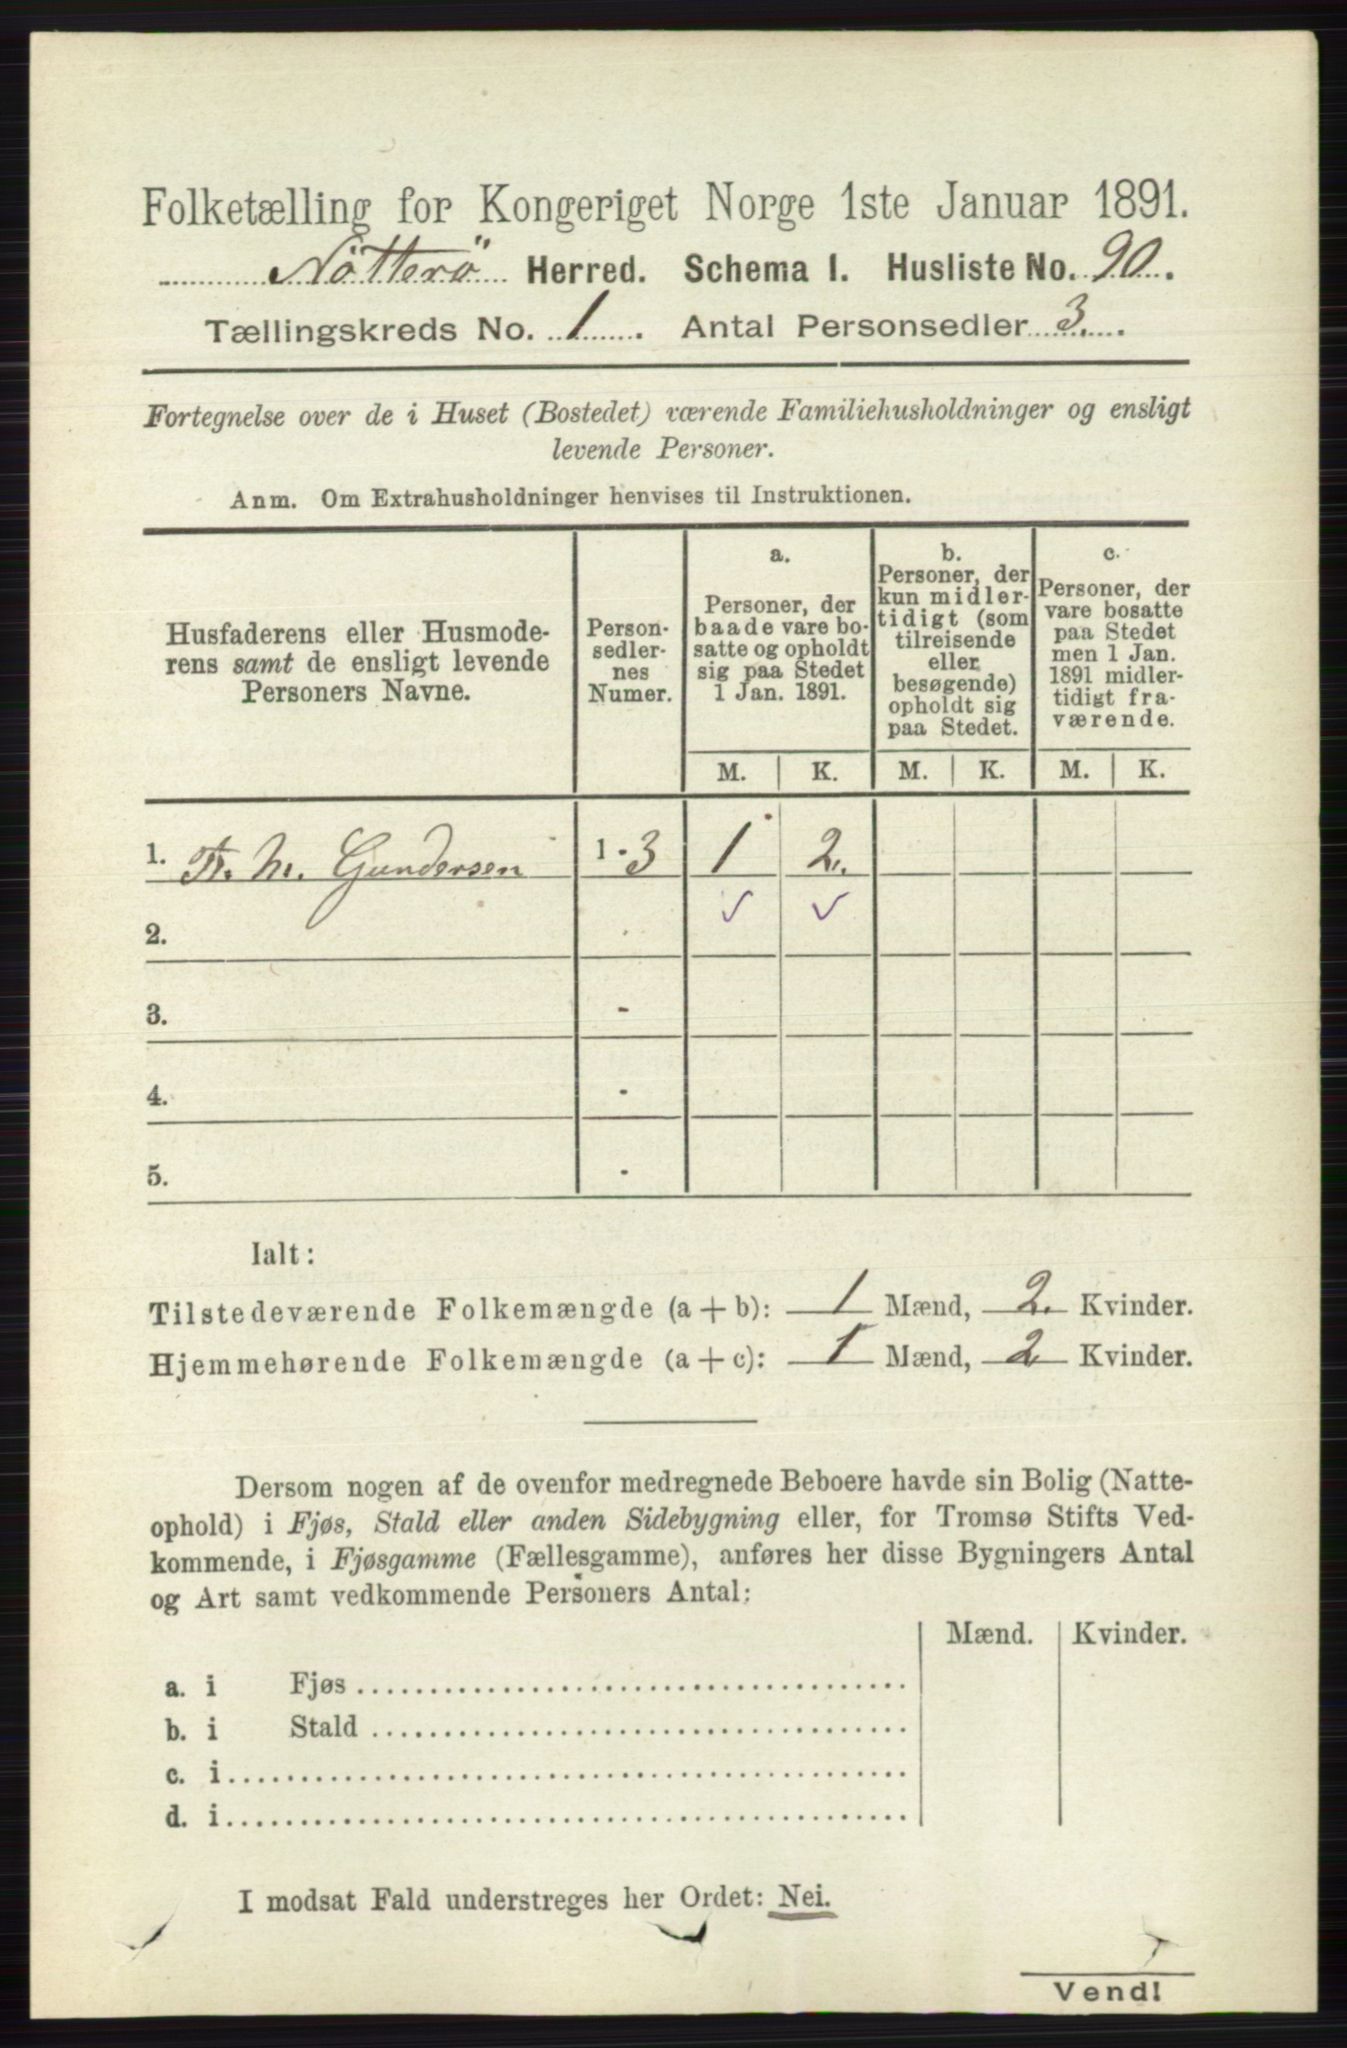 Folketælling for Kongeriget Norge 1ste Januar 1891.
Nötterö Herred. Schema I. Husliste No. 90.
Tællingskreds No. 1. Antal Personsedler 3.
Fortegnelse over de i Huset (Bostedet) værende Familiehusholdninger og ensligt
levende Personer.
Anm. Om Extrahusholdninger henvises til Instruktionen.
Husfaderens eller Husmode-
rens samt de ensligt levende
Personers Navne.
Person-
sedler-
nes
Numer.
a.
Personer, der
baade vare bo-
satte og opholdt
sig paa Stedet
1 Jan. 1891.
b.
Personer, der
kun midler-
tidigt (som
tilreisende
eller
besøgende)
opholdt sig
paa Stedet.
c.
Personer, der
vare bosatte
paa Stedet
men 1 Jan.
1891 midler-
tidigt fra-
værende.
M. K. M. K. M. K.
1. Fr. M. Gundersen 1-3 1 2.
2.
3. -
4. -
5. -
Ialt:
Tilstedeværende Folkemængde (a + b): 1 Mænd, 2. Kvinder.
Hjemmehørende Folkemængde (a + c): 1 Mænd, 2 Kvinder.
Dersom nogen af de ovenfor medregnede Beboere havde sin Bolig (Natte-
ophold) i Fjøs, Stald eller anden Sidebygning eller, for Tromsø Stifts Ved-
kommende, i Fjøsgamme (Fællesgamme), anføres her disse Bygningers Antal
og Art samt vedkommende Personers Antal:
Mænd. Kvinder.
a. i Fjøs
b. i Stald
c. i
d. i
I modsat Fald understreges her Ordet: Nei.
Vend!